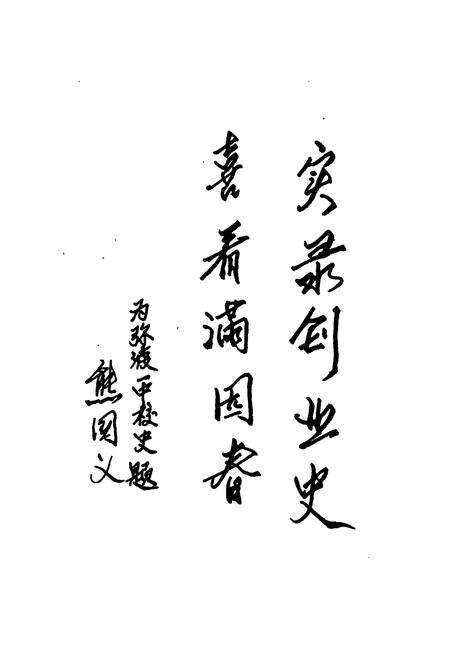 实录创业史
喜看满园春
为弥渡一中校史题
熊国义